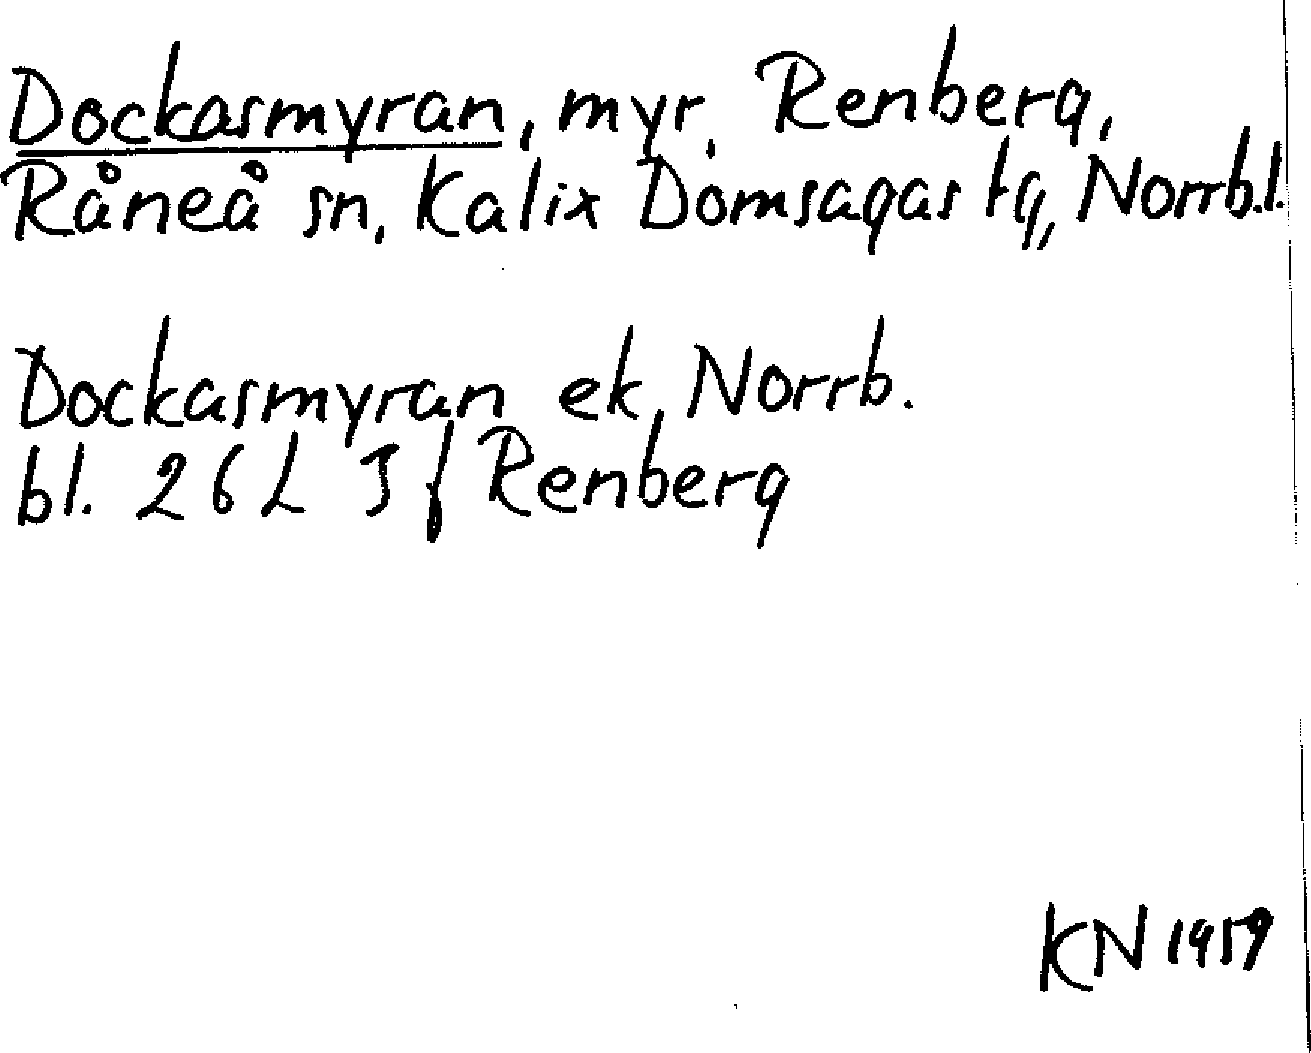 Dockasmyran, myr, Renberg,
Råneå sn, Kalix Domsagas tg, Norrb.l.
Dockasmyran ek, Norrb.
bl. 26 L J f Renberg
KN 1959